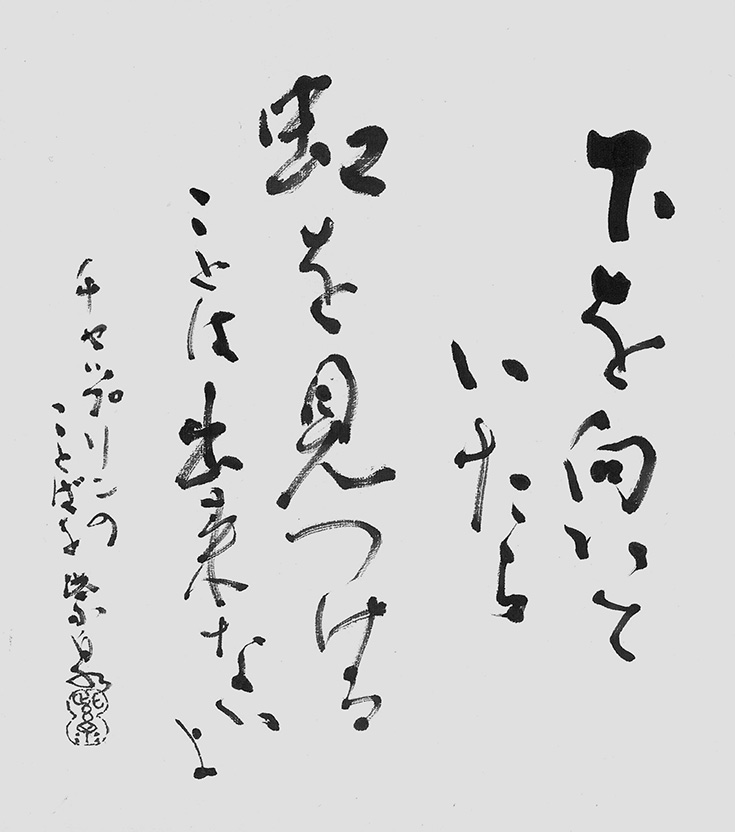 下を向いて
いたら
虹を見つける
ことは出来ないよ
チャップリンの
ことばを 紫泉
紫